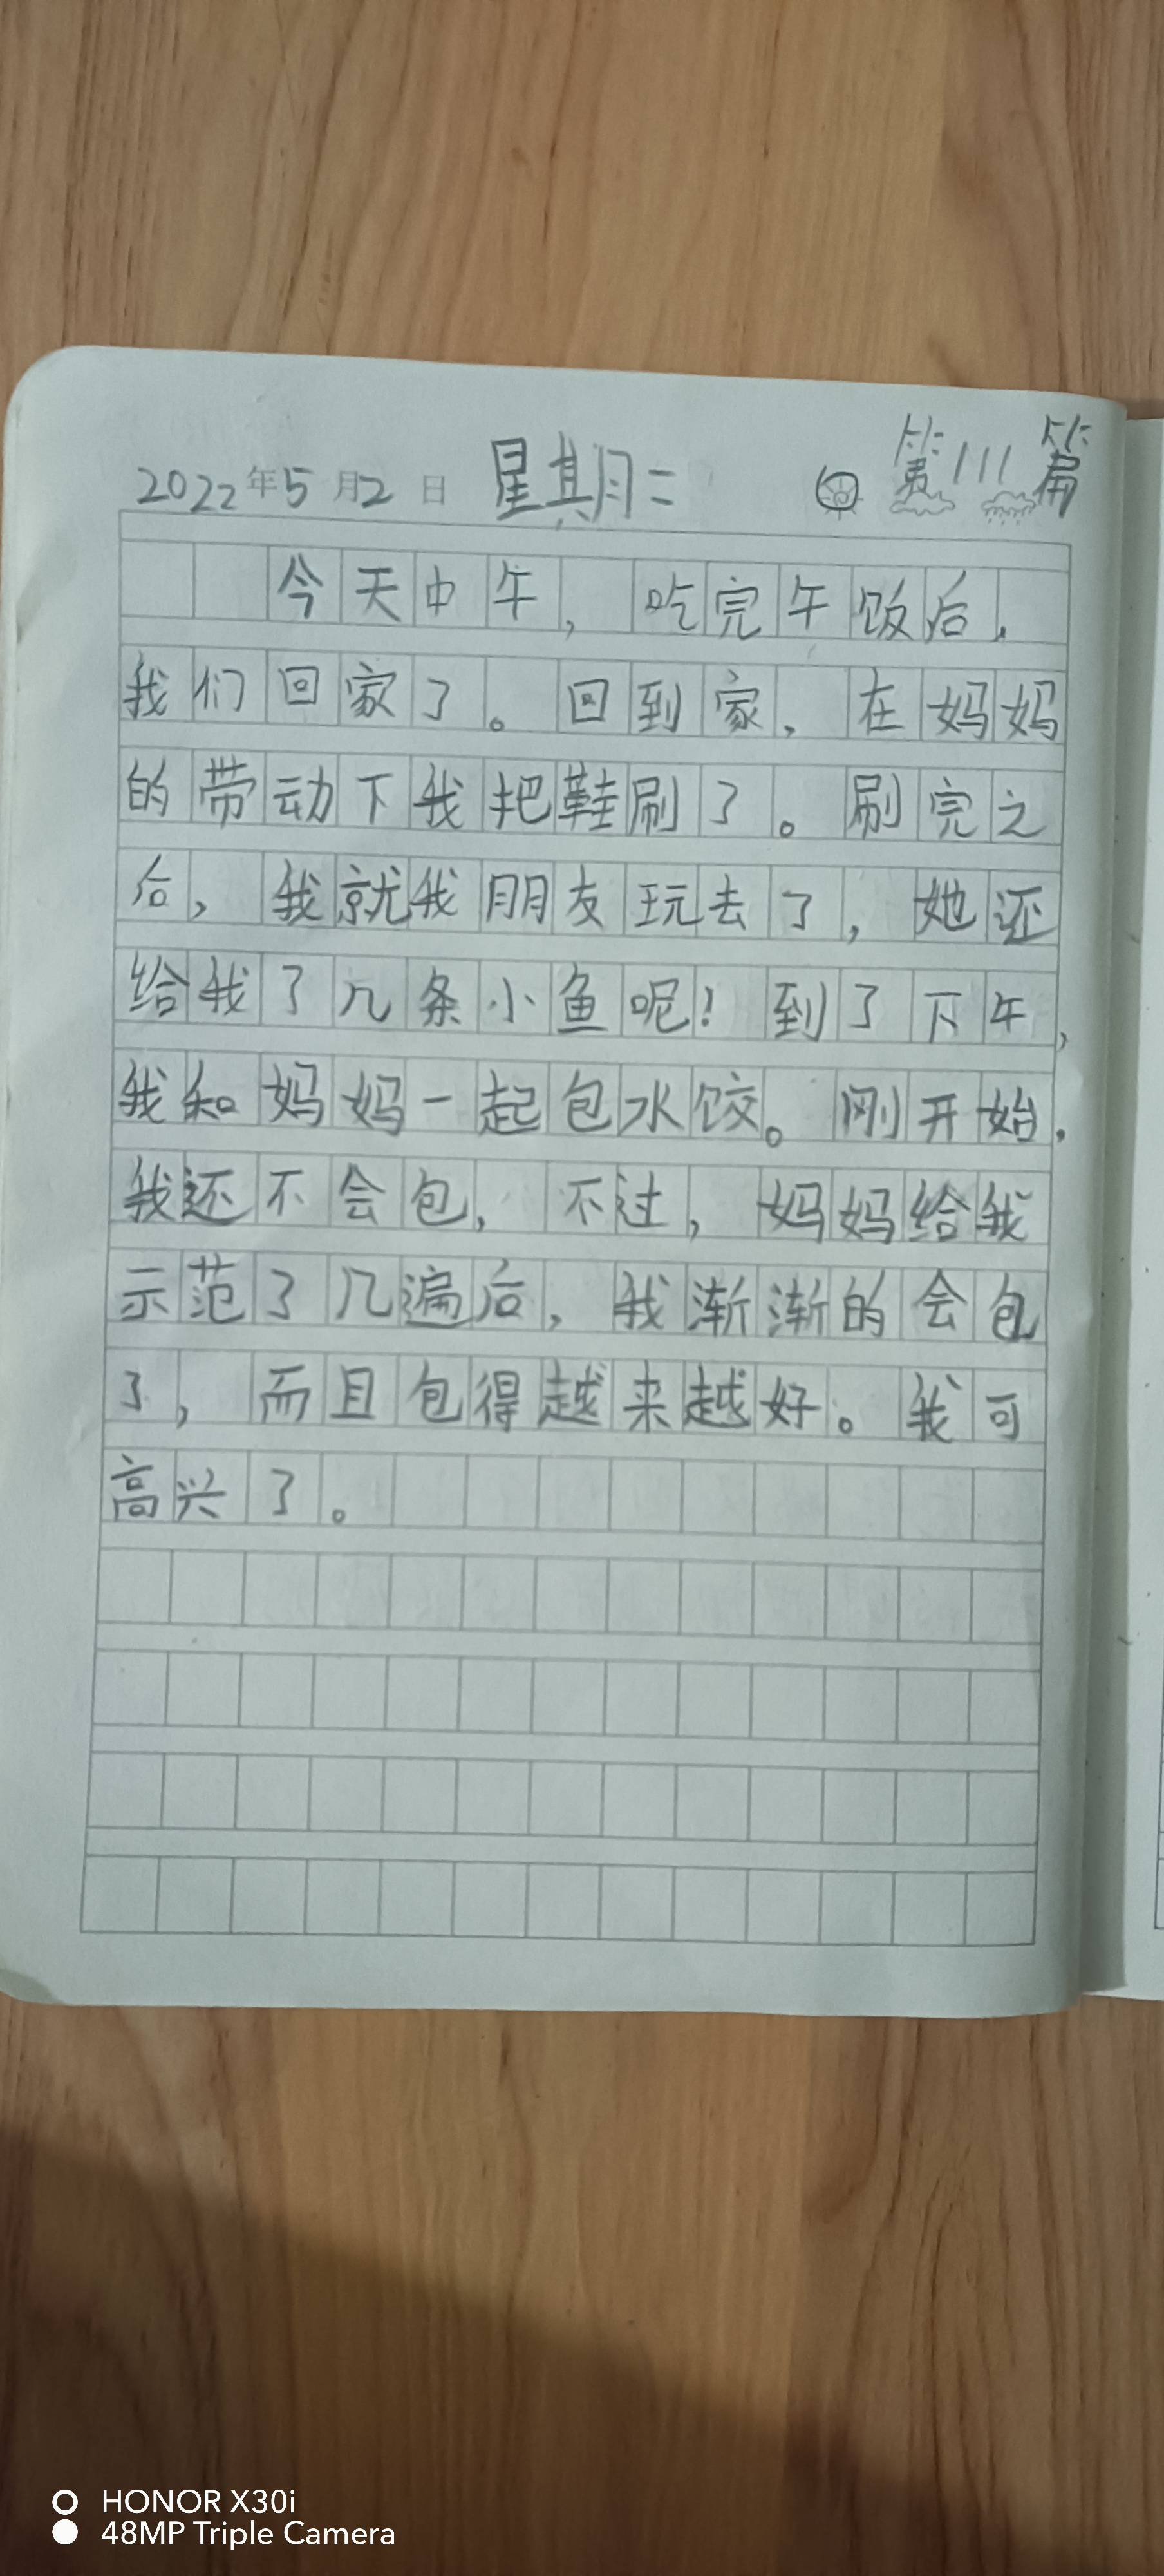 2022年5月2日 星期二 第111篇
今天中午，吃完午饭后，
我们回家了。回到家，在妈妈
的带动下我把鞋刷了。刷完之
后，我就我朋友玩去了，她还
给我了几条小鱼呢！到了下午，
我和妈妈一起包水饺。刚开始，
我还不会包，不过，妈妈给我
示范了几遍后，我渐渐的会包
了，而且包得越来越好。我可
高兴了。
HONOR X30i
48MP Triple Camera